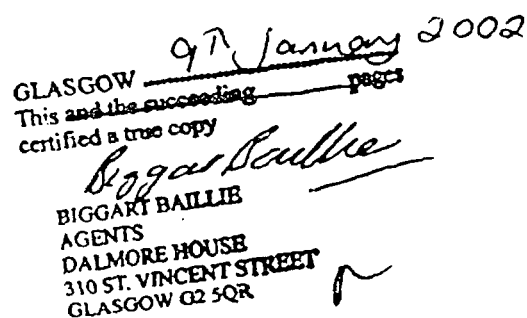 GLASGOW 9Th January 2002
This and the succeeding pages
certified a true copy
Biggart Baillie
BIGGART BAILLIE
AGENTS
DALMORE HOUSE
310 ST. VINCENT STREET
GLASGOW G2 5QR